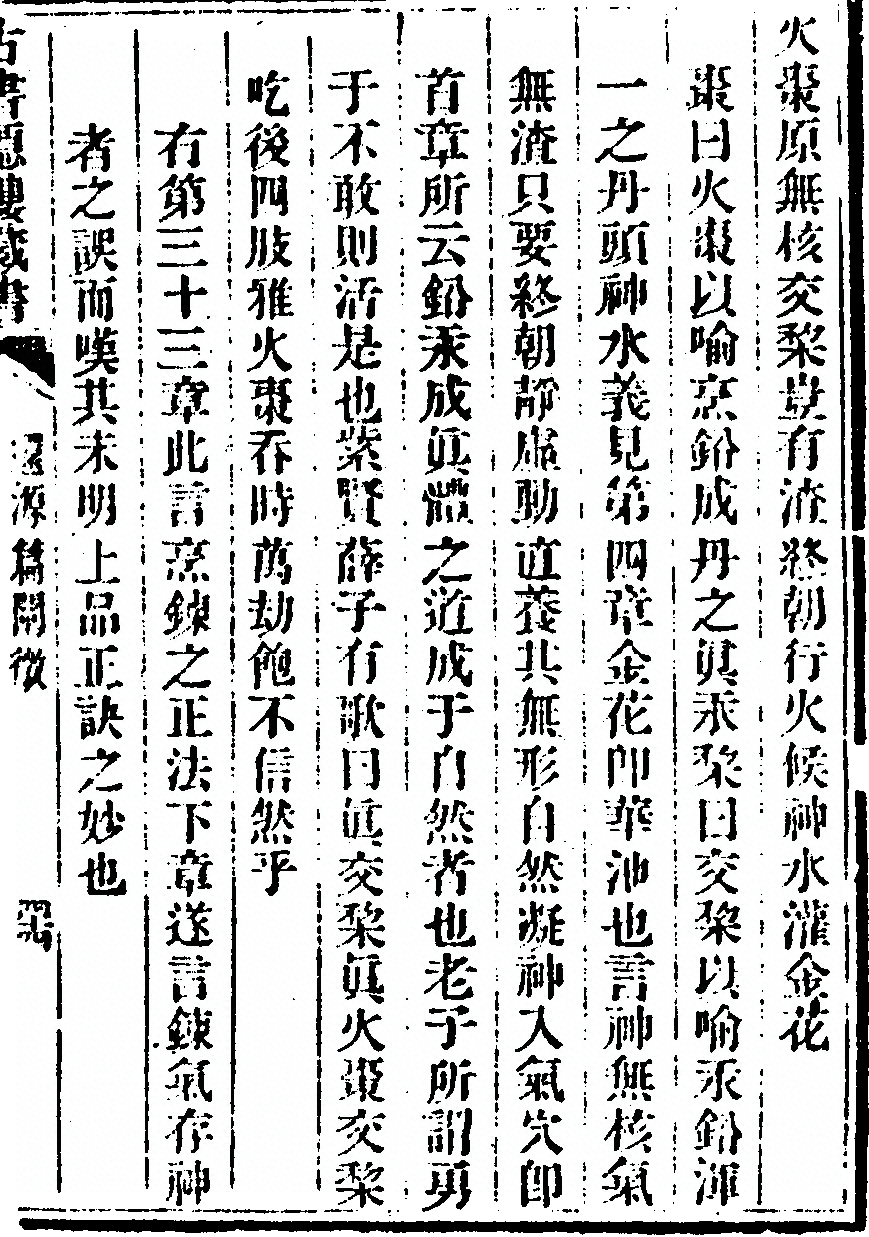 火棗原無核交棃豈有渣終朝行火候神水灌金花
棗曰火棗以喻烹鉛成丹之眞汞棃曰交棃以喻汞鉛渾
一之丹頭神水義見第四章金花卽華池也言神無核氣
無渣只要終朝靜虛動直養其無形自然凝神入氣穴卽
首章所云鉛汞成眞體之道成于自然者也老子所謂勇
于不敢則活是也紫賢薛子有歌曰眞交棃眞火棗交棃
吃後四肢雅火棗吞時萬劫飽不信然乎
右第三十三章此言烹鍊之正法下章遂言鍊氣存神
者之誤而嘆其未明上品正訣之妙也
古書隱樓藏書
還源篇闡微